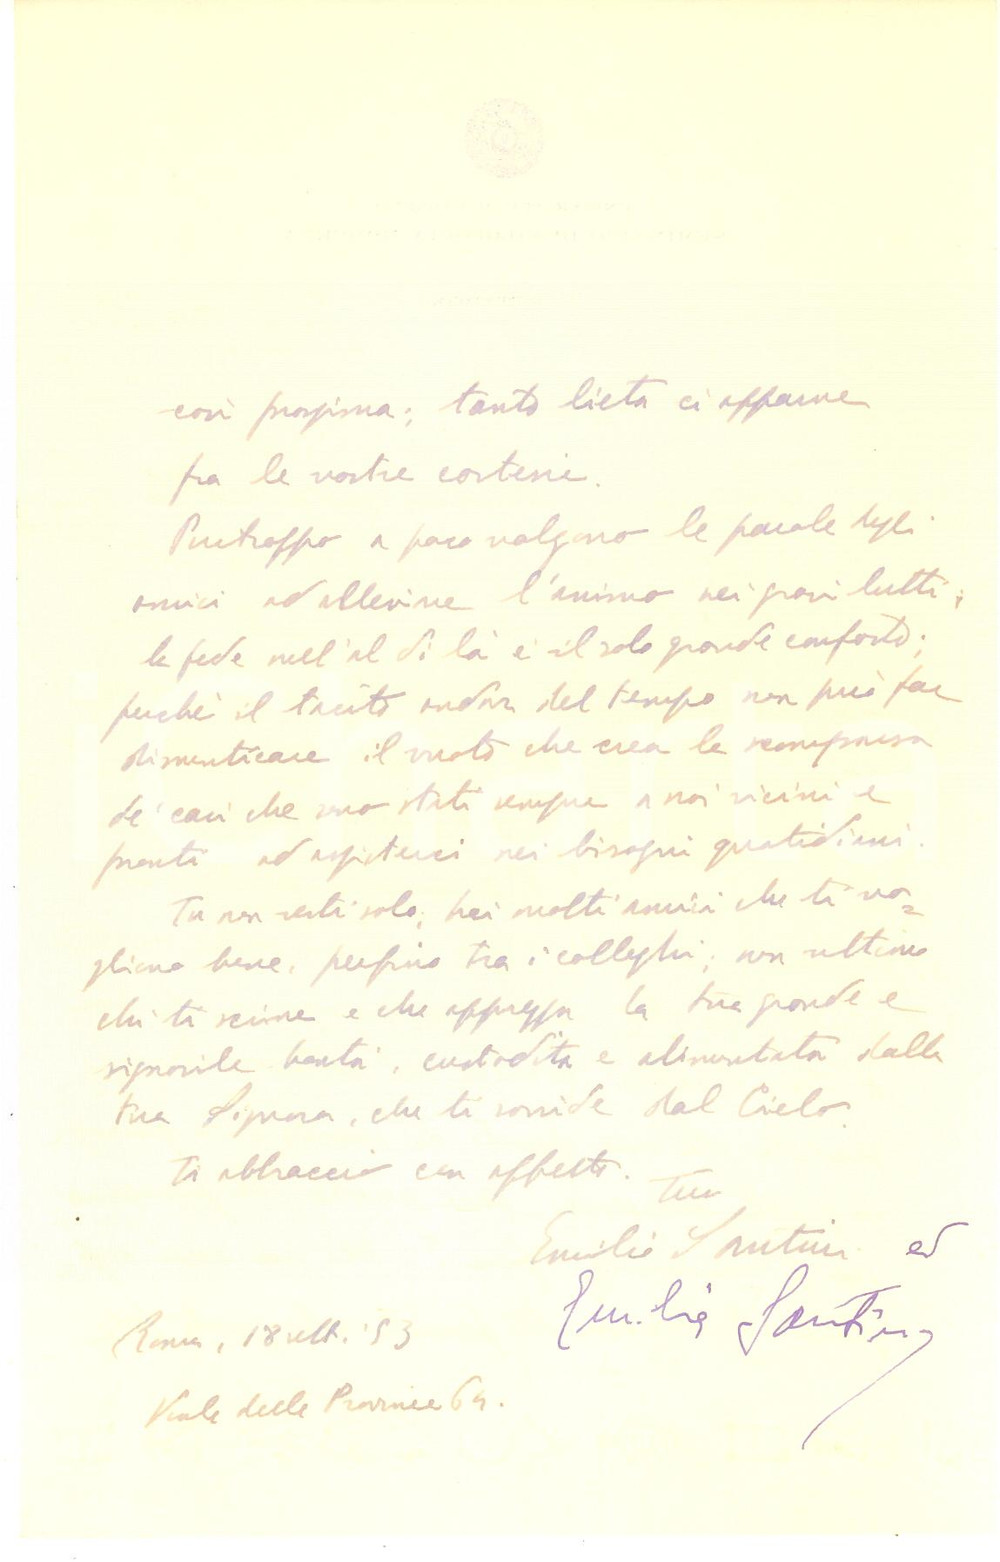 così prossima; tanto lieta ci apparve
fra le vostre cortesie.
Purtroppo a poco valgono le parole degli
amici ad alleviare l'animo nei gravi lutti;
la fede nell'al di là è il solo grande conforto;
perché il tacito andar del tempo non può far
dimenticare il vuoto che crea la scomparsa
de' cari che sono stati sempre a noi vicini e
pronti ad assisterci nei bisogni quotidiani.
Tu non resti solo; hai molti amici che ti vo=
gliono bene, perfino tra i colleghi; non ultimo
chi ti scrive e che apprezza la tua grande e
signorile bontà, custodita e alimentata dalla
tua Signora, che ti sorride dal Cielo.
Ti abbraccio con affetto.
Tuo
Emilio Santini ed
Emilia Santini
Roma, 18 sett. '53
Viale delle Provincie 64.